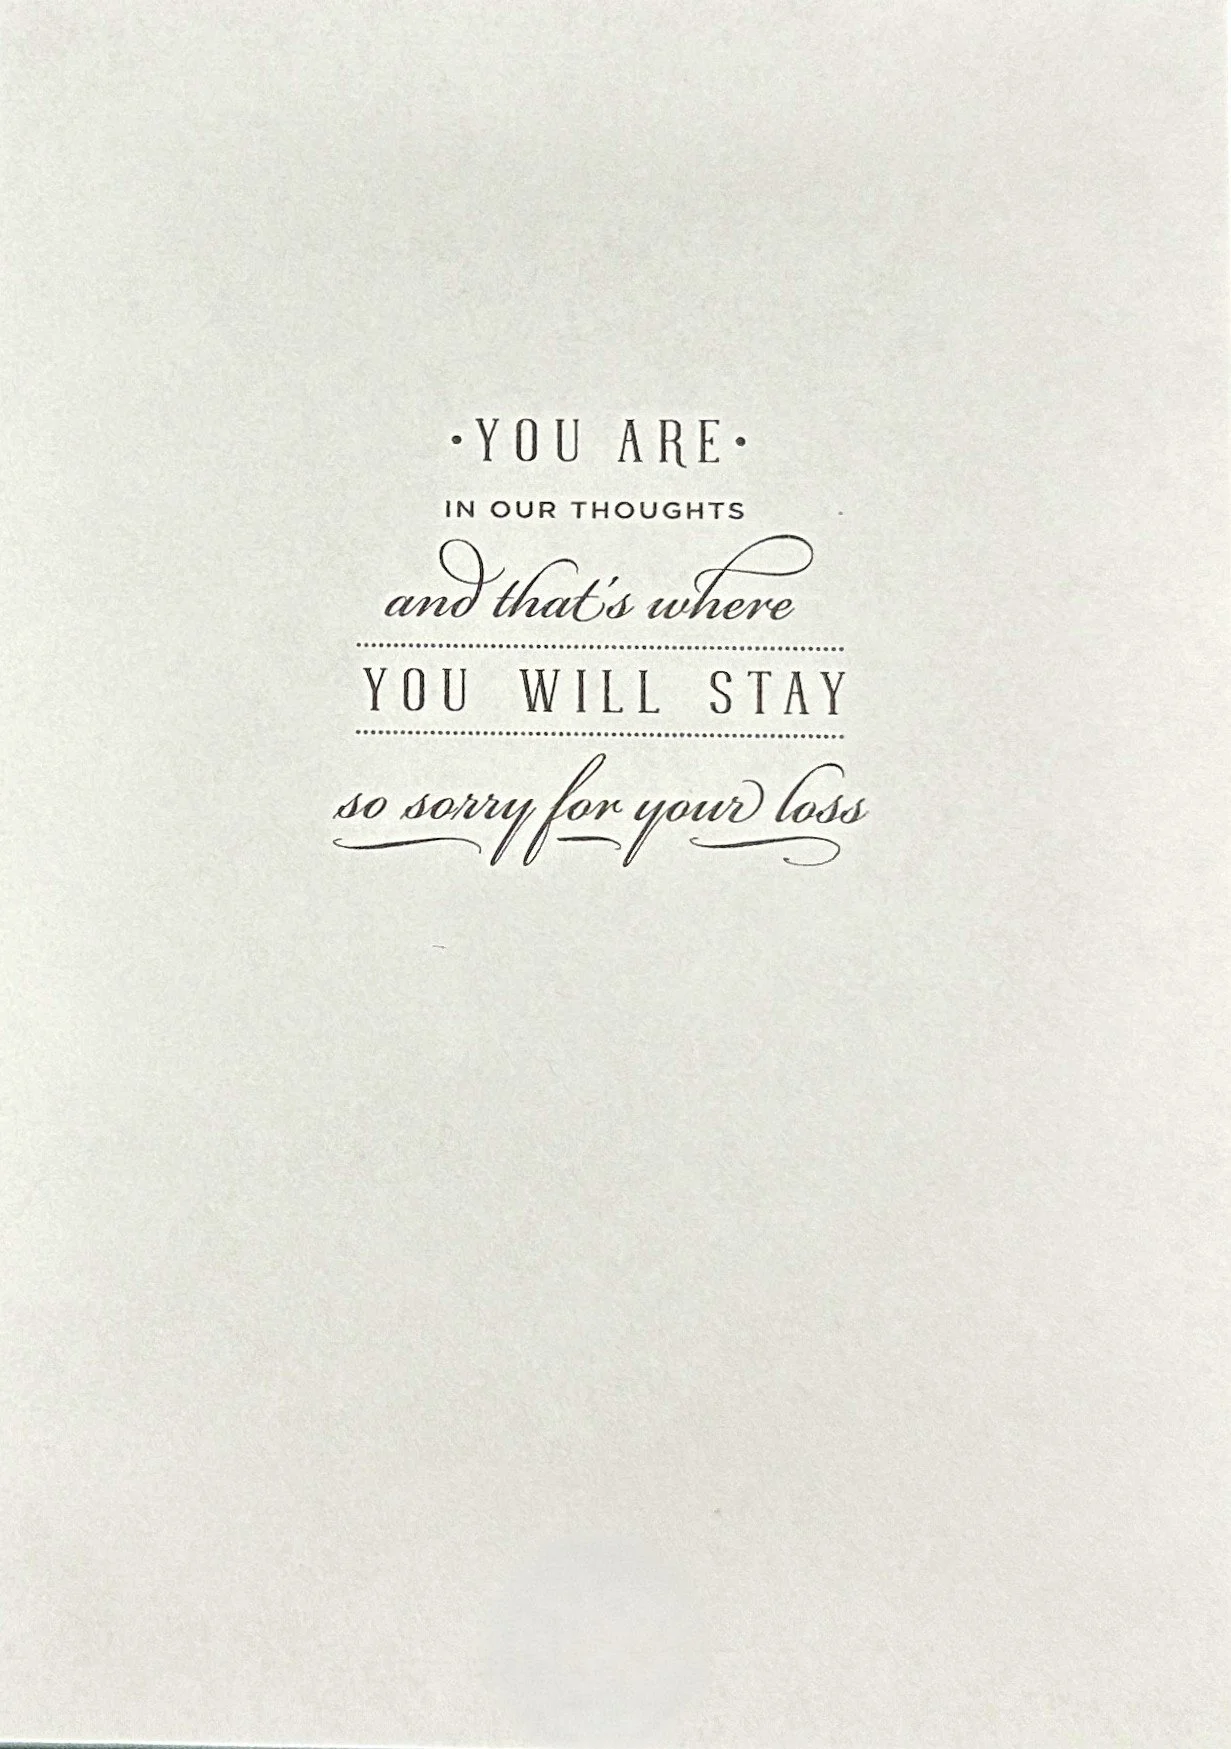 ·YOU ARE·
IN OUR THOUGHTS
and that's where
YOU WILL STAY
so sorry for your loss